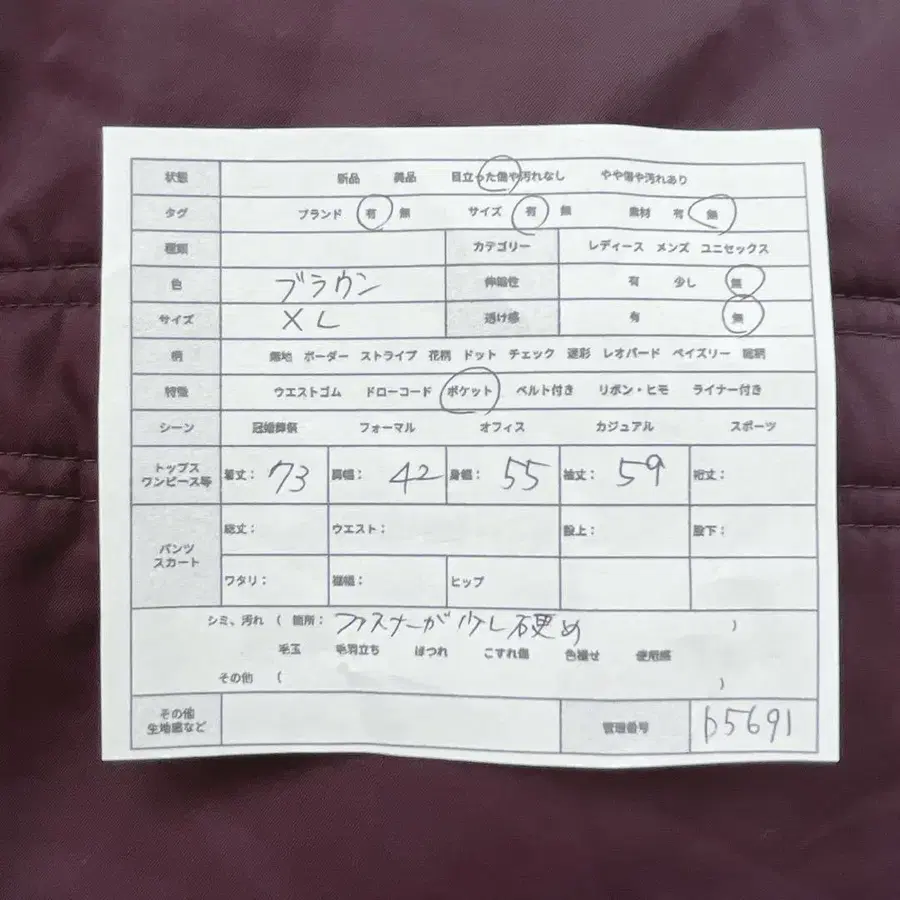 状態 新品 美品 目立った傷や汚れなし やや傷や汚れあり
タグ ブランド 有 無 サイズ 有 無 素材 有 無
種類 カテゴリー レディース メンズ ユニセックス
色 ブラウン 伸縮性 有 少し 無
サイズ XL 透け感 有 無
柄 無地 ボーダー ストライプ 花柄 ドット チェック 迷彩 レオパード ペイズリー 総柄
特徴 ウエストゴム ドローコード ポケット ベルト付き リボン・ヒモ ライナー付き
シーン 冠婚葬祭 フォーマル オフィス カジュアル スポーツ
トップス
ワンピース等 着丈: 73 肩幅: 42 身幅: 55 袖丈: 59 裄丈:
パンツ
スカート
総丈: ウエスト: 股上: 股下:
ワタリ: 裾幅: ヒップ
シミ、汚れ ( 箇所: ファスナーが少し硬め )
毛玉 毛羽立ち ほつれ こすれ傷 色褪せ 使用感
その他 ( )
その他
生地感など 管理番号 b5691